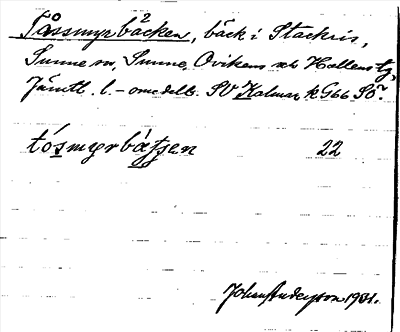 Tåssmyrbäcken, bäck i Stackris,
Sunne sn, Sunne, Ovikens och Hallens tg,
Jämtl. l. – omedelb. SV Kalmar k G66 SO
tósmyrbätjen 22
John Anderson 1931.